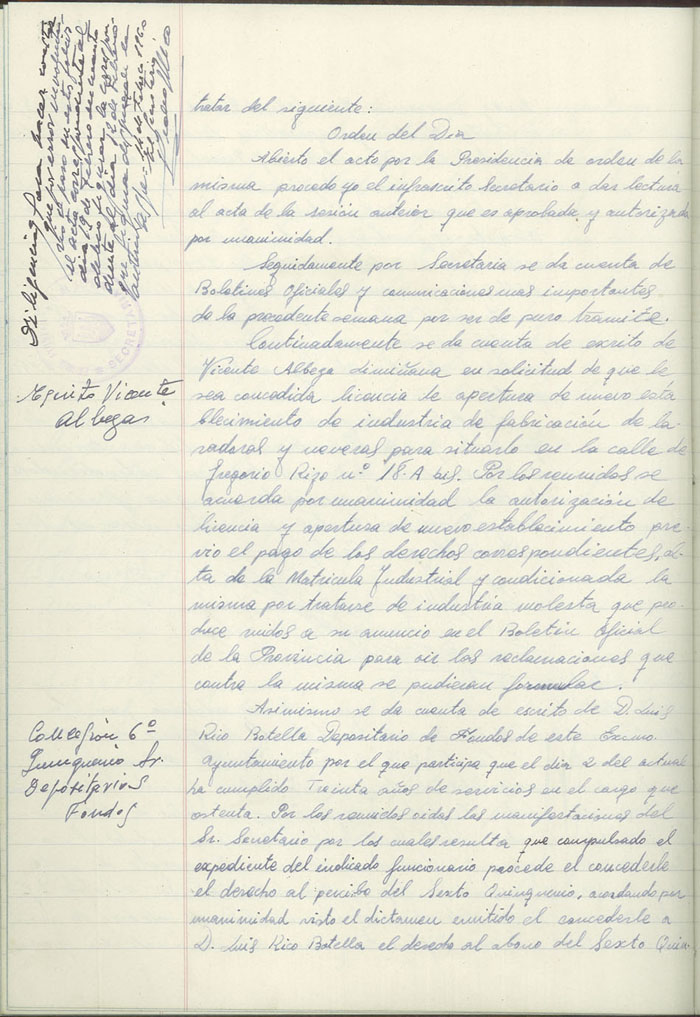 Diligencia, para hacer constar
que por error involunta-
rio se puso en este folio
el acta correspondiente al
dia 19 de Febrero
SECRETARIA
tratar del siguiente:
Orden del Dia
Abierto el acto por la Presidencia de orden de la
misma procedo yo el infrascrito Secretario a dar lectura
al acta de la sesión anterior que es aprobada y autorizada
por unanimidad.
Seguidamente por Secretaria se da cuenta de
Boletines Oficiales y comunicaciones mas importantes
de la precedente semana por ser de puro tramite.
Continadamente se da cuenta de escrito de
Escrito Vicente
Albegas
Vicente Albega Dimiñana en solicitud de que le
sea concedida licencia de apertura de nuevo esta
blecimiento de industria de fabricación de la-
vadoras y neveras para situarlo en la calle de
Gregorio Rizo nº 18-A bis. Por los reunidos se
acuerda por unanimidad la autorización de
licencia y apertura de nuevo establecimiento pre-
vio el pago de los derechos correspondientes, al-
ta de la Matricula Industrial y condicionada la
misma por tratarse de industria molesta que pro-
duce ruidos a su anuncio en el Boletin Oficial
de la Provincia para oir las reclamaciones que
contra la misma se pudieran formular.
Concesión 6º
Quinquenio Sr.
Depositarios
Fondos
Asimismo se da cuenta de escrito de D. Luis
Rico Botella Depositario de Fondos de este Excmo.
Ayuntamiento por el que participa que el dia 2 del actual
ha cumplido Treinta años de servicios en el cargo que
ostenta. Por los reunidos oidas las manifestaciones del
Sr. Secretario por los cuales resulta que compulsado el
expediente del indicado funcionario procede el concederle
el derecho al percibo del Sexto Quinquenio, acordando por
unanimidad visto el dictamen emitido el concederle a
D. Luis Rico Botella el derecho al abono del Sexto Quin-